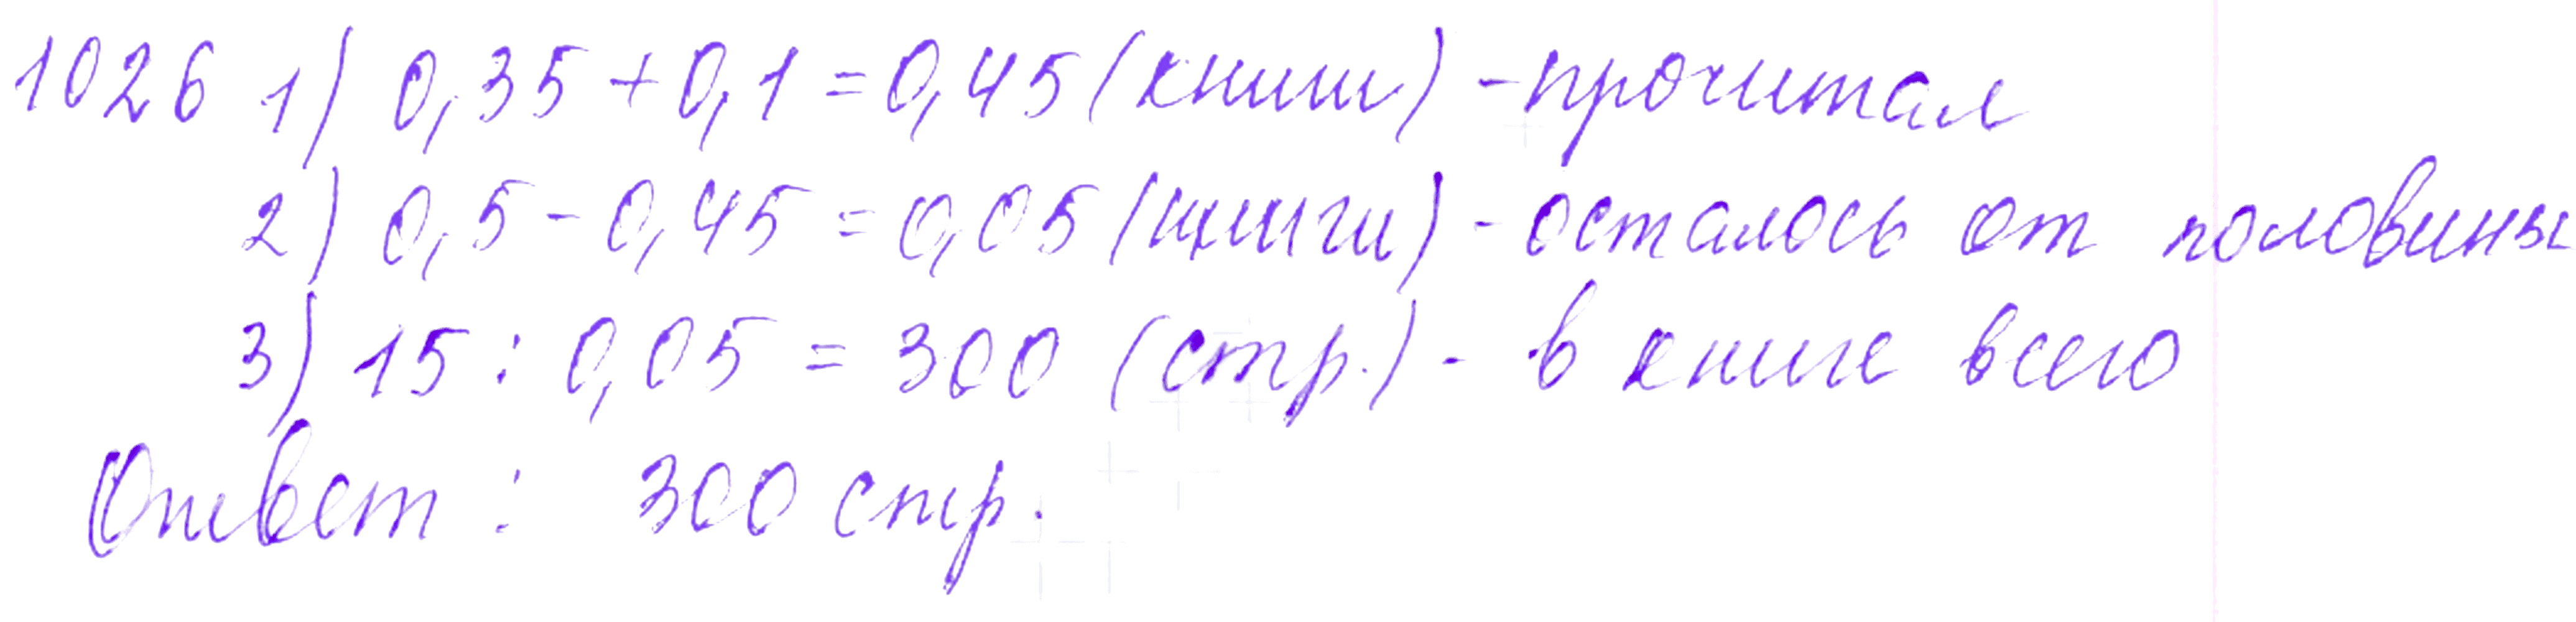 1026 1) 0,35 + 0,1 = 0,45 (книги) - прочитал
2) 0,5 - 0,45 = 0,05 (книги) - осталось от половины
3) 15 : 0,05 = 300 (стр.) - в книге всего
Ответ : 300 стр.